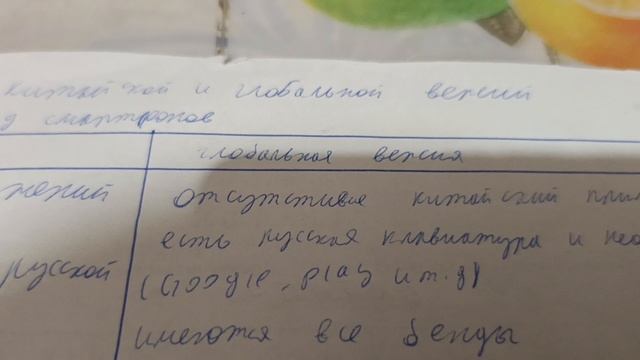 китайской и глобальной версий
д смартфонов
глобальная версия
жений отсутствие китайский прил
есть русская клавиатура и нео
русской (Google, play и т.д)
имеются все бенды